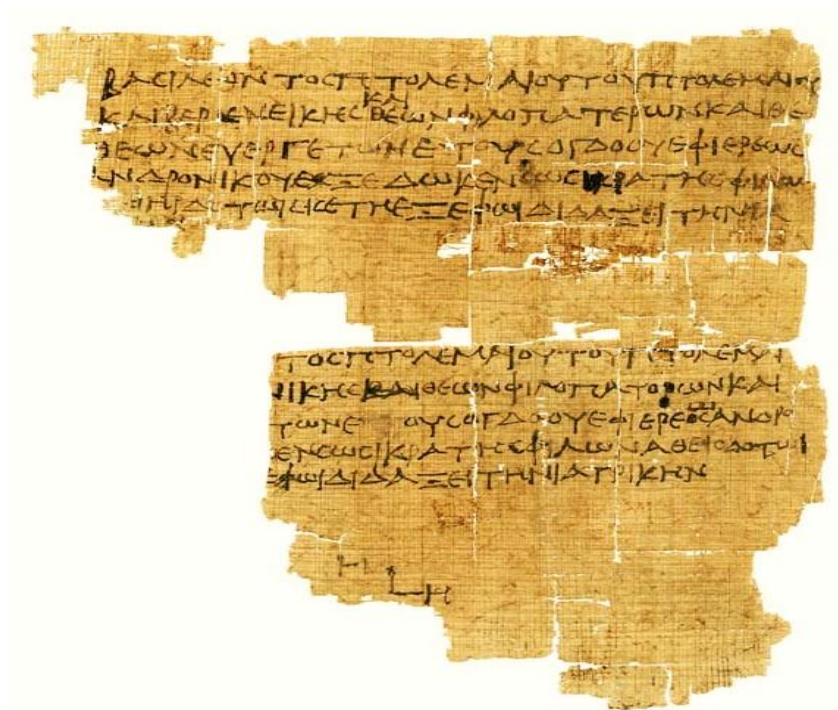 ΒΑϹΙΛΕΟΝΤΟϹΠΤΟΛΕΜΑΙΟΥΤΟΥΠΤΟΛΕΜΑΙΟΥ
ΚΑΙ
ΚΑΙΒΕΡΕΝΕΙΚΗϹΘΕΩΝΦΙΛΟΠΑΤΕΡΩΝΚΑΙΘΕ
ΘΕΩΝΕΥΕΡΓΕΤΩΝΕΤΟΥϹΟΓΔΟΟΥΕΦΙΕΡΕΩϹ
ΝΔΡΟΝΙΚΟΥΕΞΕΔΩΚΕΝϹΩϹΙΚΡΑΤΗϹΦΙΛΩ
ΔΟΤΩΙ ΕΤΗΕΞΕΦΩΙΔΙΔΑΞΕΙΤΗΝΙΑ
ΤΟϹΠΤΟΛΕΜΑΙΟΥΤΟΥΠΤΟΛΕΜΑΙ
ΝΙΚΗϹΚΑΙΘΕΩΝΦΙΛΟΠΑΤΟΡΩΝΚΑΙ
ΤΩΝΕ ΟΥϹΟΓΔΟΟΥΕΦΙΕΡΕΟϹΑΝΔΡΟ
ΕΝϹΩϹΙΚΡΑΤΗϹΦΙΛΩΝΑΘΕΙΟΔΟΤΩΙ
ΕΦΩΙΔΙΔΑΞΕΙΤΗΝΙΑΤΡΙΚΗΝ
Η
LΗ